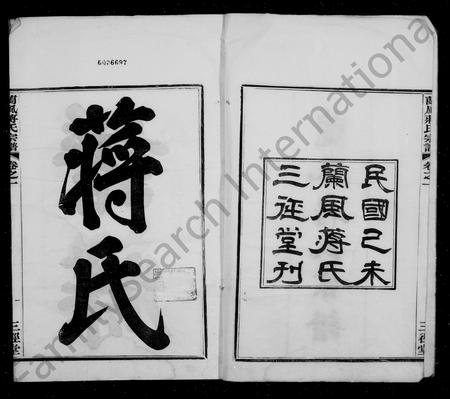 6036697
蔣氏
民國己未
蘭風蔣氏
三徑堂刊
蘭風蔣氏宗譜
卷之一
一
三徑堂
蘭風蔣氏宗譜
卷之一
三徑堂
FamilySearch International